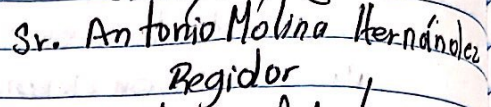 Sr. Antonio Molina Hernández
Regidor